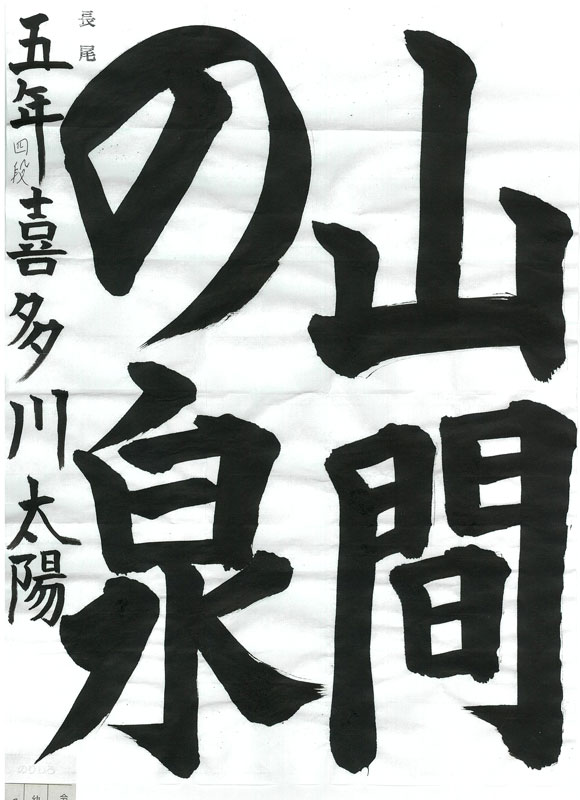 山間
の泉
長尾
五年 四段 喜多川太陽